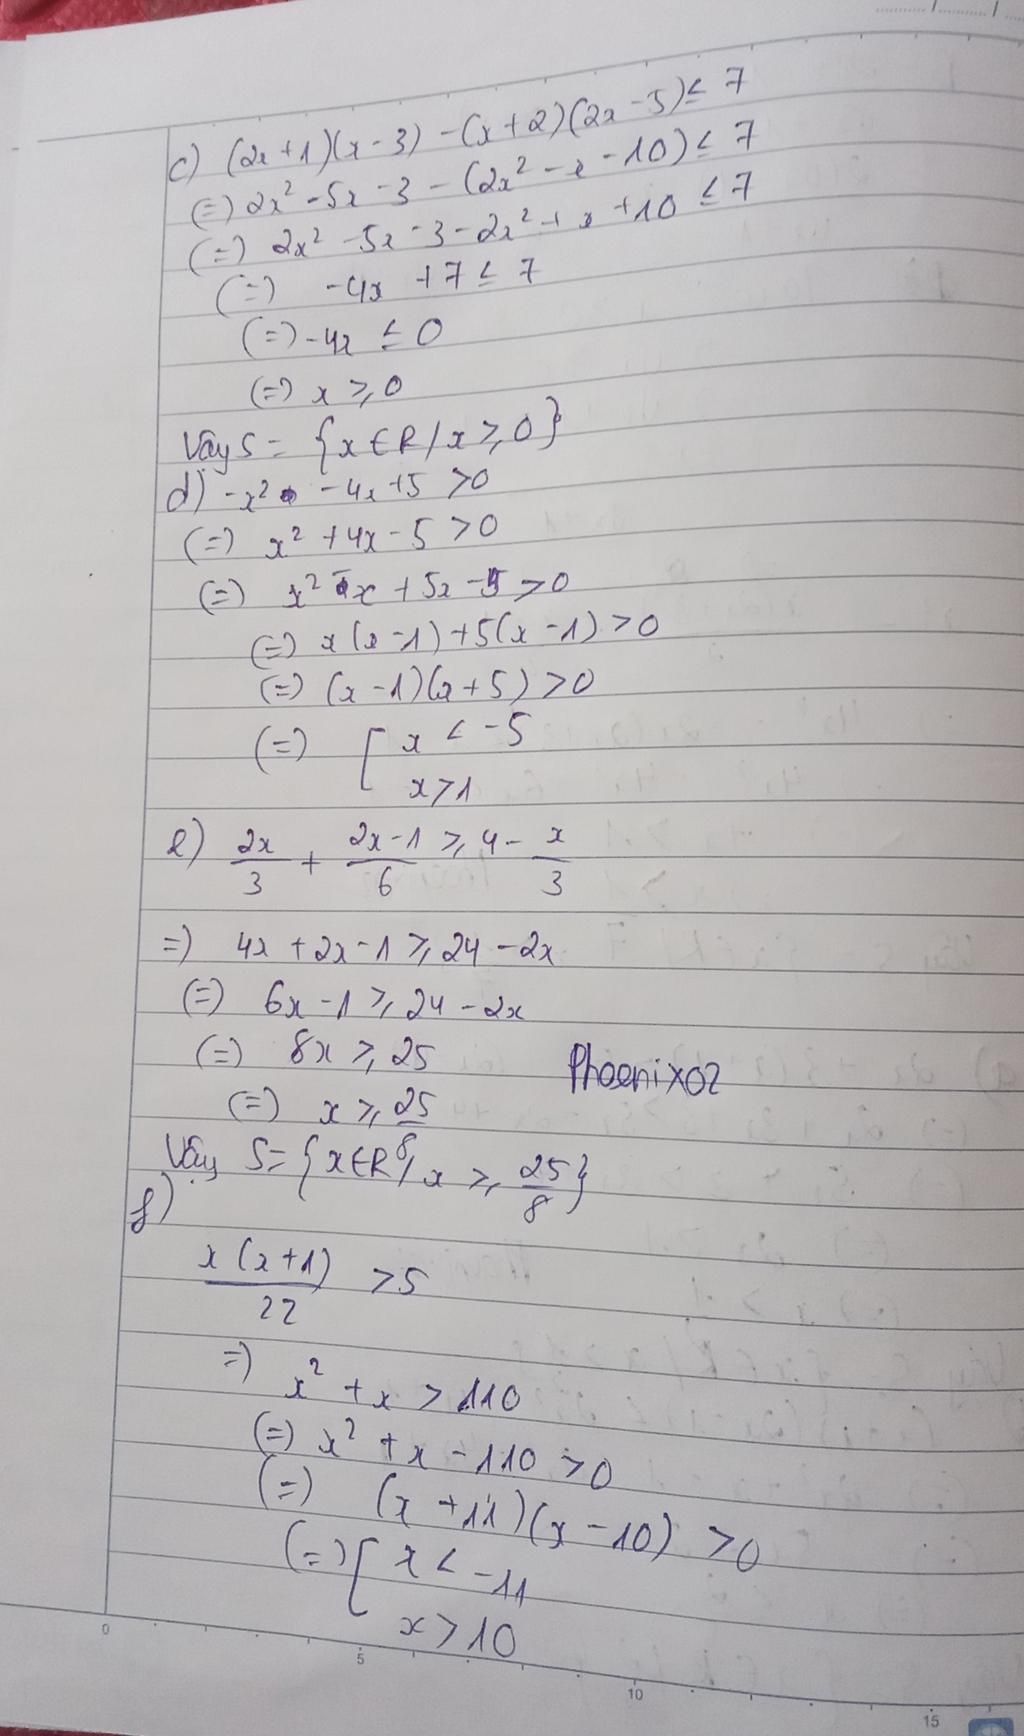 c) (2x+1)(x-3) -(x+2)(2x-5) ≤ 7
(=) 2x² -5x -3 - (2x² -x -10) ≤ 7
(=) 2x² -5x -3 -2x² +x +10 ≤ 7
(=) -4x +7 ≤ 7
(=) -4x ≤ 0
(=) x ≥ 0
Vậy S = {x ∈ R / x ≥ 0}
d) -x² -4x +5 > 0
(=) x² +4x -5 > 0
(=) x² -x +5x -5 > 0
(=) x(x-1) +5(x-1) > 0
(=) (x-1)(x+5) > 0
(=) [ x < -5
x > 1
e) 2x/3 + 2x-1/6 ≥ 4 - x/3
=) 4x +2x -1 ≥ 24 -2x
(=) 6x -1 ≥ 24 -2x
(=) 8x ≥ 25
Phoenixoz
(=) x ≥ 25/8
Vậy S = {x ∈ R / x ≥ 25/8}
f)
x(x+1)/22 > 5
=) x² + x > 110
(=) x² + x - 110 > 0
(=) (x +11)(x -10) > 0
(=) [ x < -11
x > 10
0
5
10
15